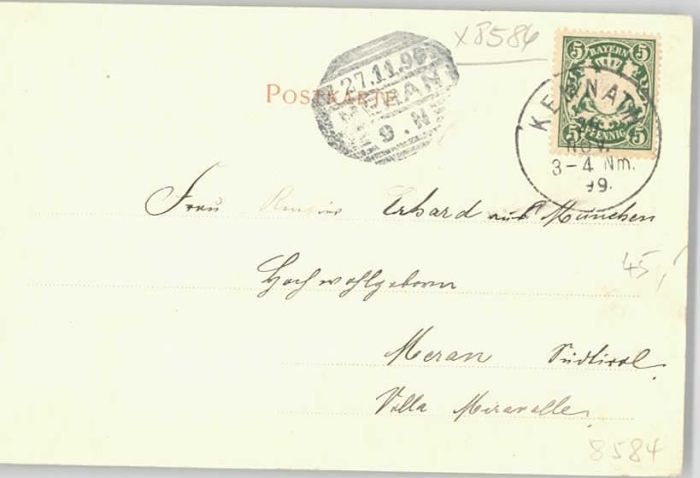 x8586
27.11.99
MERAN
9.N
POSTKARTE
5 BAYERN 5
5 PFENNIG 5
KEMNATH
NOV.
3-4 Nm.
99.
Frau Erhard aus München
Hochwohlgeboren
Meran Südtirol
Villa Miravalle
45,-
8584